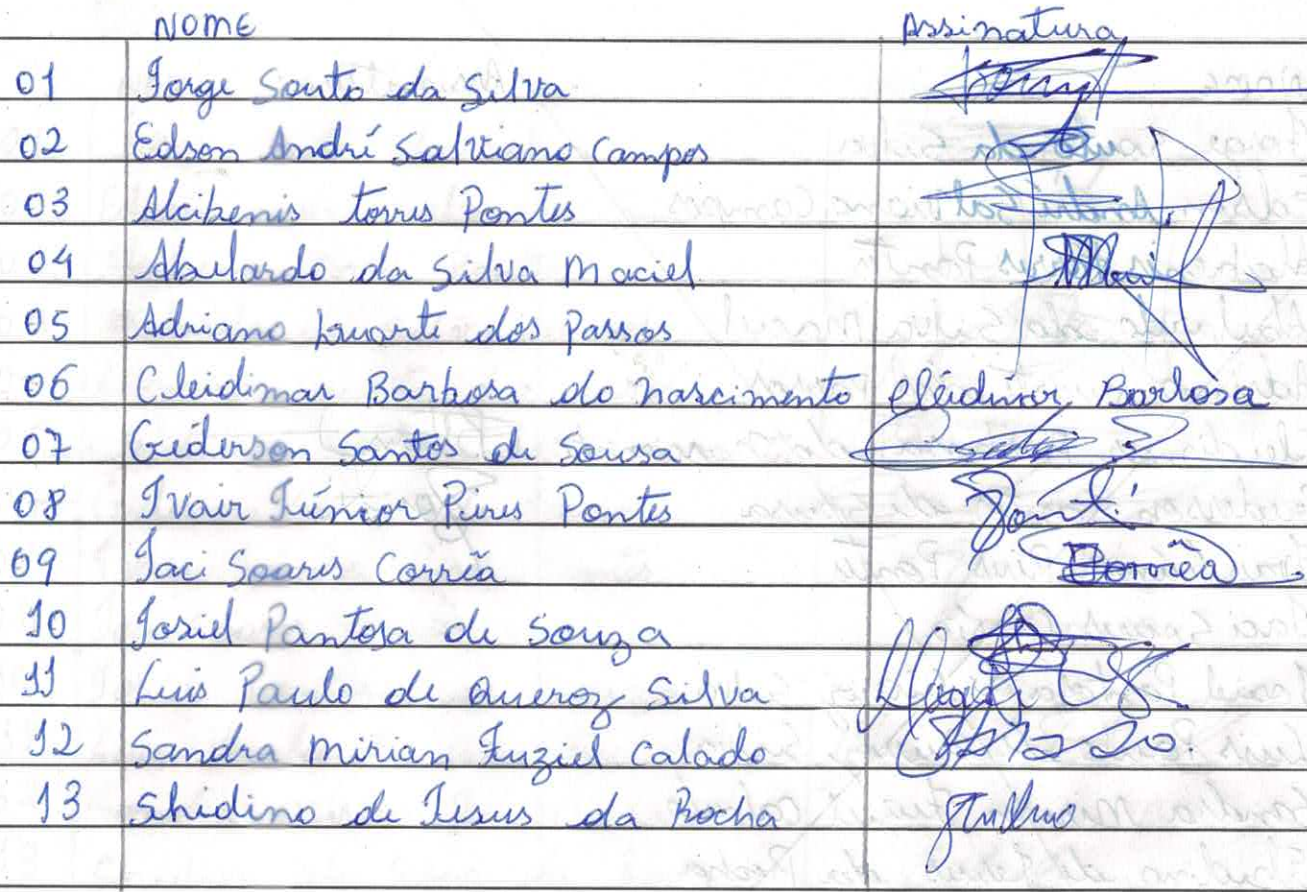 NOME Assinatura
01 Jorge Souto da Silva
02 Edson André Salviano Campos
03 Alcibenis torres Pontes
04 Abelardo da Silva Maciel
05 Adriano Duarte dos Passos
06 Cleidimar Barbosa do nascimento Cleidimar Barbosa
07 Gederson Santos de Sousa
08 Ivair Júnior Pires Pontes
09 Jaci Soares Corrêa Corrêa
10 Josiel Pantoja de Souza
11 Luis Paulo de Queroz Silva
12 Sandra Mirian Fuziel Calado
13 Shidino de Jesus da Rocha